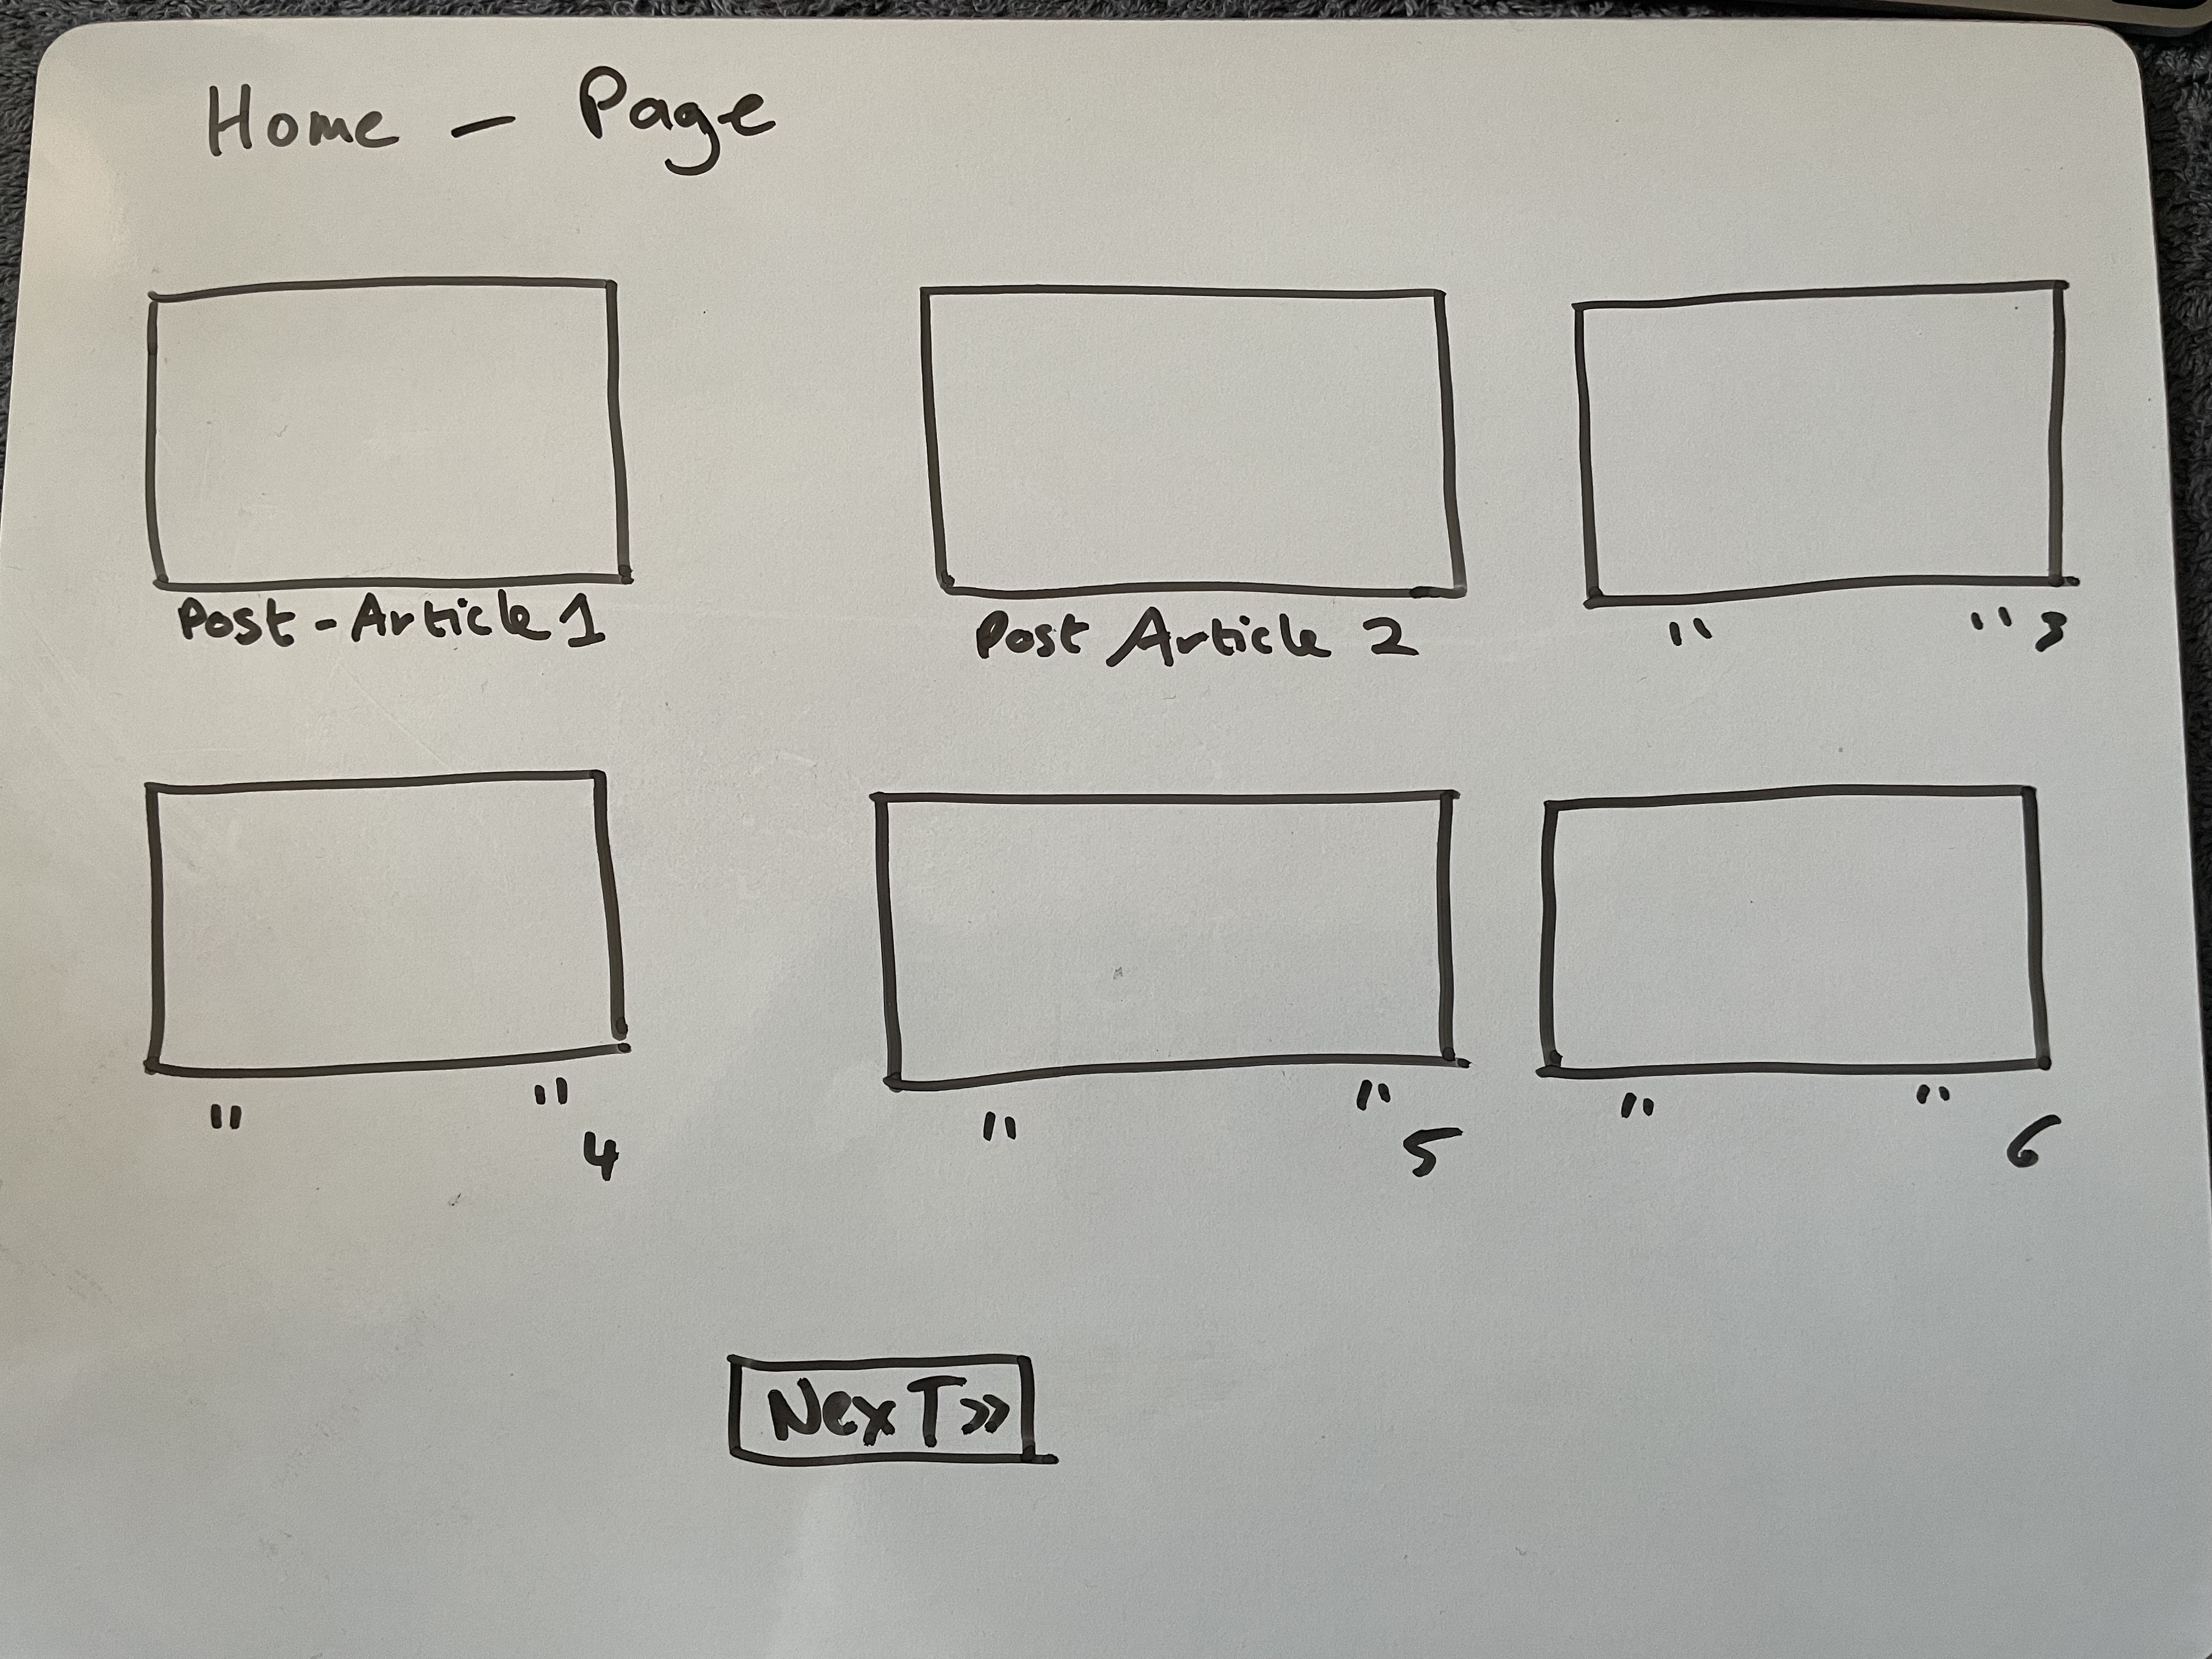 Home - Page
Post - Article 1
Post Article 2
" " 3
" " 4
" " 5
" " 6
Next »